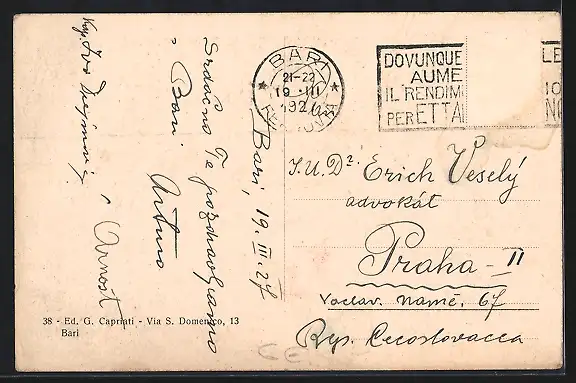 BARI
21-22
19 · III
192
FERROVIA
DOVUNQUE
AUME
IL RENDIM
PER ETTA
LE
IO
NO
Bari, 19. III. 27
Srdačno Te pozdravljamo
Bari
Arnošt
J.U.Dr. Erich Veselý
advokát
Praha - II
Vaclav. namě. 67
Rep. Cecoslovacca
38 - Ed. G. Capriati - Via S. Domenico, 13
Bari